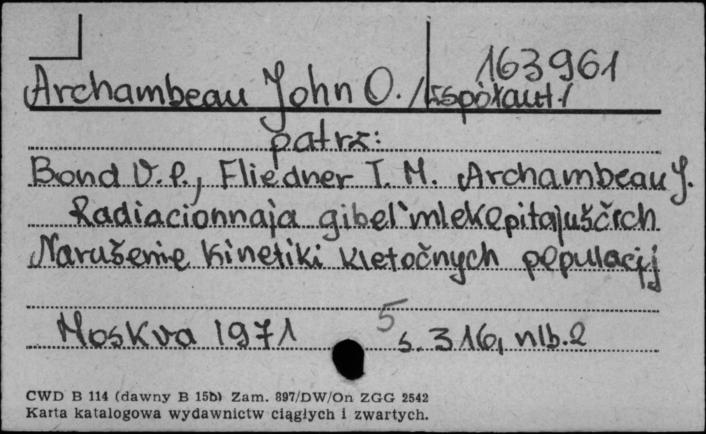 163961
Archambeau John O. /współaut./
patrz:
Bond V. P., Fliedner T. M. Archambeau J.
Radiacionnaja gibel' mlekopitajuščich
Narušenie kinetiki kletočnych populacij
Moskva 1971 5 s. 316, nlb. 2
CWD B 114 (dawny B 15b) Zam. 897/DW/On ZGG 2542
Karta katalogowa wydawnictw ciągłych i zwartych.